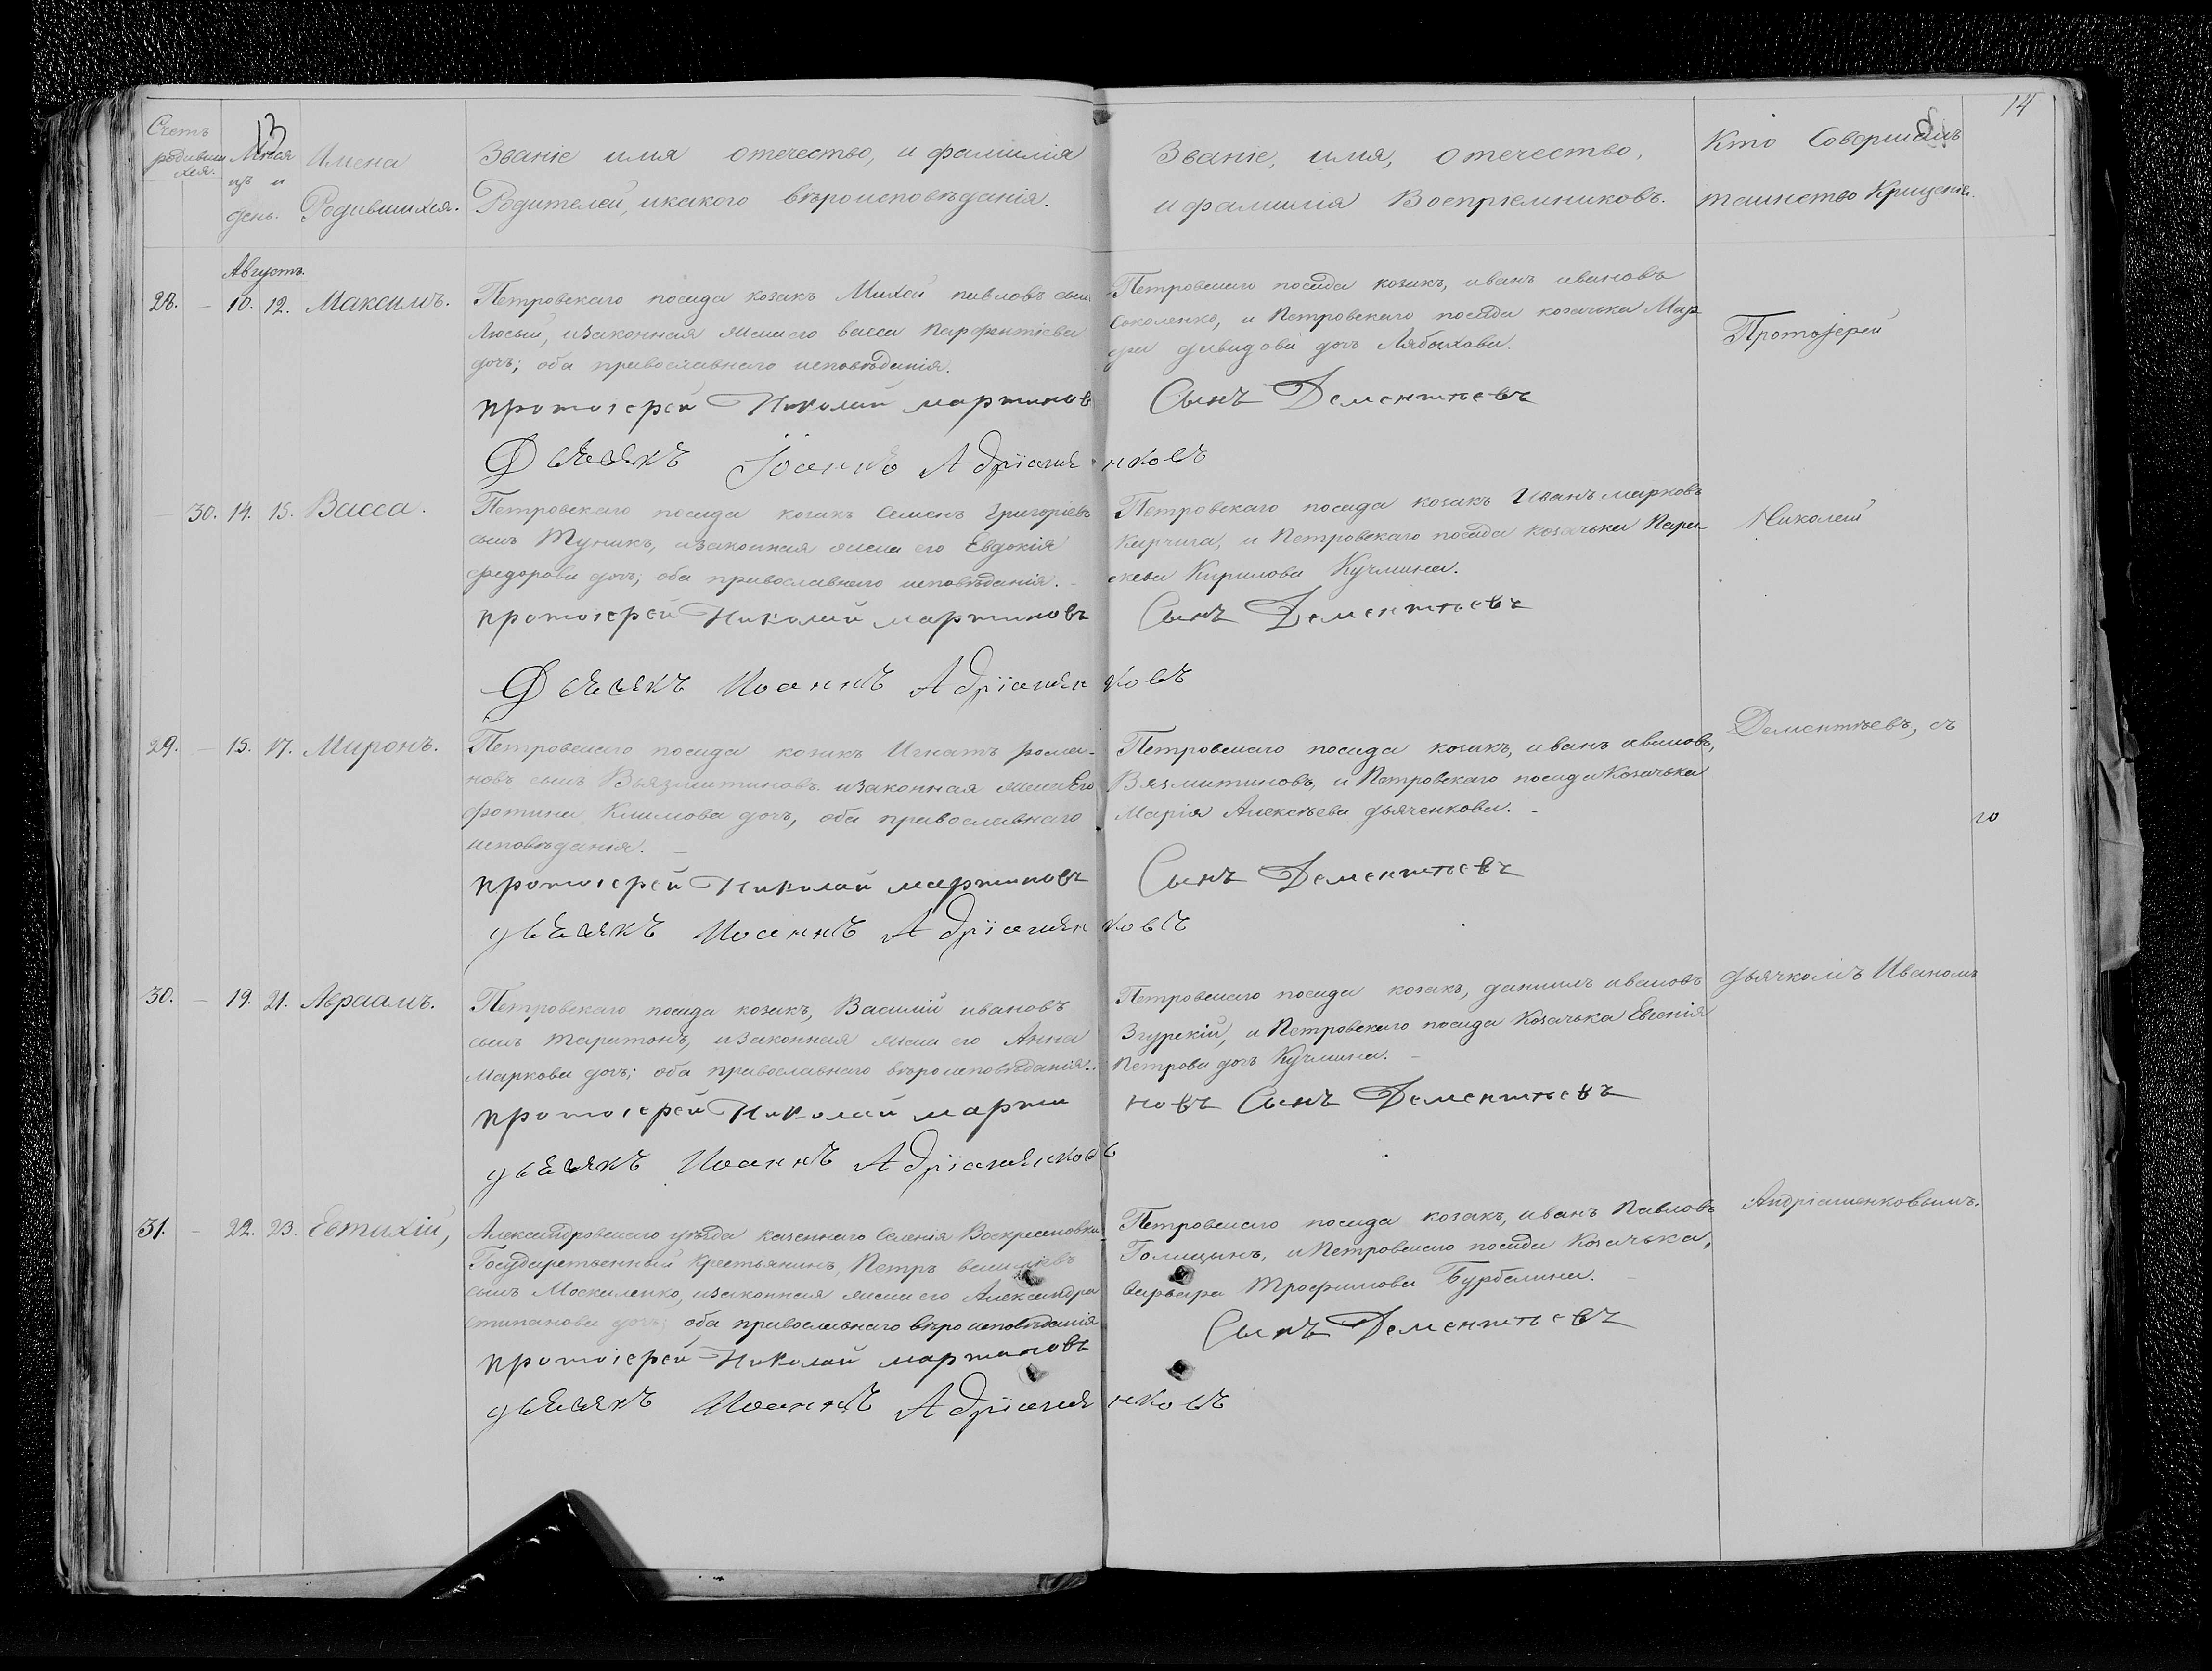 Счетъ
родивши
хся.
13
Мѣся
цъ и
день.
Имена
Родившихся.
Званіе имя отечество, и фамилія
Родителей, икакого вѣроисповѣданія.
Званіе, имя, отечество,
и фамилія Воспріемниковъ.
Кто Совершалъ
таинство Крещенія.
14
Августъ.
28. – 10. 12. Максимъ.
Петровскаго посада козакъ Михей павловъ сынъ
изаконная жена его васса парфентіева
дочь; оба православнаго исповѣданія.
протоіерей Николай мартиновъ
Дьячекъ Іоаннъ Адріяшя
Петровскаго посада козакъ, иванъ ивановъ
Соколенко, и Петровскаго посада козачька Мар
фа давидова дочь Лябихова.
Сынъ Дементьевъ
нковъ
Протоіерей
– 30. 14. 15. Васса.
Петровскаго посада козакъ Семенъ Григоріевъ
сынъ Туникъ, изаконная жена его Евдокія
федорова дочь; оба православнаго исповѣданія. –
протоіерей Николай мартиновъ
Дьячекъ Иоаннъ Адріяшян
Петровскаго посада козакъ Иванъ марковъ
Кирчига, и Петровскаго посада козачька Пара
скева Кирилова Кучмина.
Сынъ Дементьевъ
ковъ
Николай
29. – 15. 17. Миронъ.
Петровскаго посада козакъ Игнатъ рома-
новъ сынъ Вьязмитиновъ изаконная жена Его
фотина Климова дочь, оба православнаго
исповѣданія. –
протоіерей Николай мартиновъ
дьячекъ Иоаннъ Адріяшян
Петровскаго посада козакъ, иванъ ивановъ,
Вязмитиновъ, и Петровскаго посада Козачька
Марія Алексѣева дьяченкова. –
Сынъ Дементьевъ
ковъ
Дементѣевъ, съ
го
30. – 19. 21. Авраамъ.
Петровскаго посада козакъ, Василій ивановъ
сынъ таритонъ, изаконная жена его Анна
Маркова дочь; оба православнаго вѣроисповѣданія.
протоіерей Николай марти
дьячекъ Иоаннъ Адріяшянков
Петровскаго посада козакъ, даниилъ ивановъ
Згурскій, и Петровскаго посада Козачька Евгенія
Петрова дочь Кучмина. –
новъ Сынъ Дементьевъ
ъ
дьячкомъ Иваномъ
31. – 22. 23. Евтихій,
Александровскаго уѣзда казеннаго Селенія Воскресеновки
Государственный Крестьянинъ, Петръ василіевъ
сынъ Москаленко, изаконная жена его Александра
стипанова дочь; оба православнаго вѣроисповѣданія
протоіерей Николай мартиновъ
дьячекъ Иоаннъ Адріяшя
Петровскаго посада козакъ, иванъ Павловъ
Голицынъ, и Петровскаго посада Козачька,
варвара Трофимова Бурбелина.
Сынъ Дементьевъ
нковъ
Андріашенковымъ.